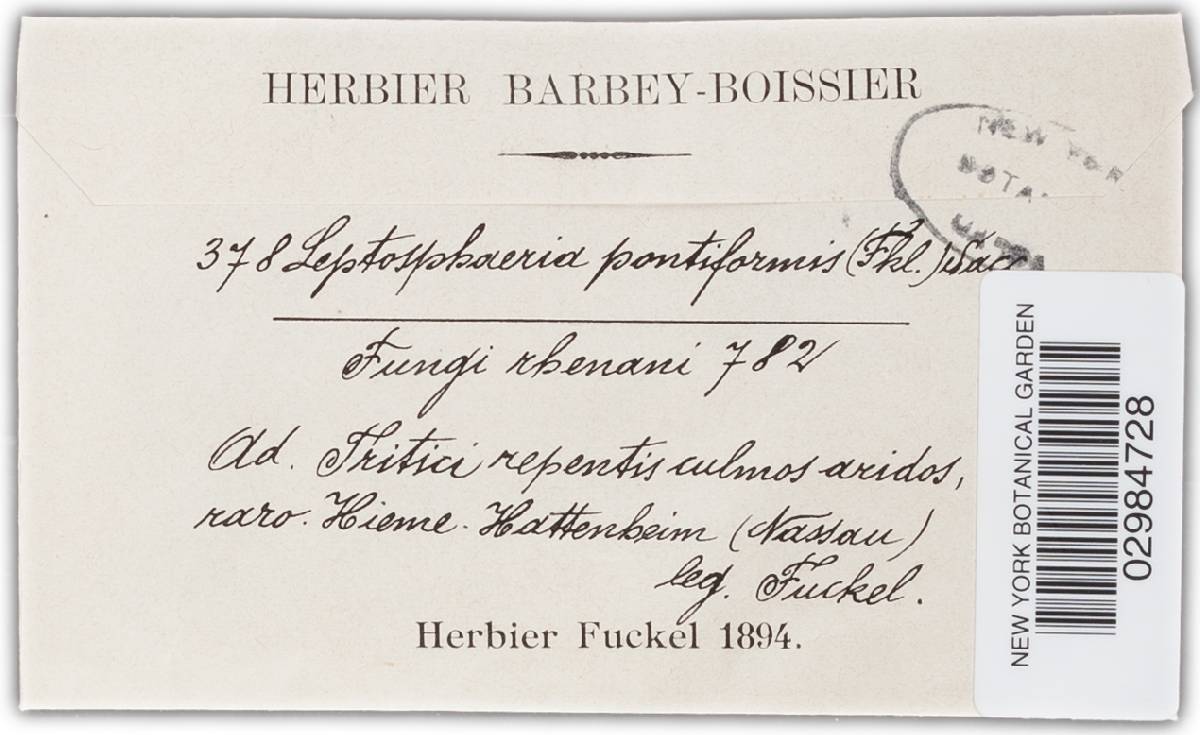 HERBIER BARBEY-BOISSIER
NEW YOR
BOTA
378 Leptosphaeria pontiformis (Fkl.) Sac
Fungi rhenani 782
Ad. Tritici repentis culmos aridos,
raro. Hieme. Hattenheim (Nassau)
leg. Fuckel.
Herbier Fuckel 1894.
NEW YORK BOTANICAL GARDEN
02984728